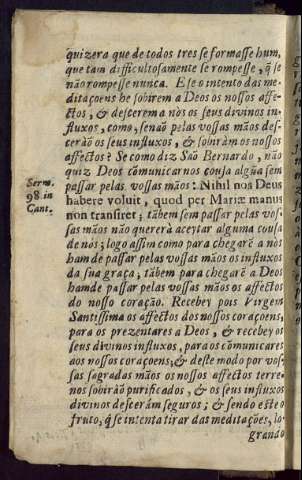 quizera que de todos tres se formasse hum,
que tam difficultosamente se rompesse, q̃ se
não rompesse nunca. E se o intento das me-
ditaçoens he sobirem a Deos os nossos affe-
ctos, & descerem a nòs os seus divinos in-
fluxos, como, senaõ pelas vossas mãos des-
cerão os seus influxos, & sobiràm os nossos
affectos? Se como diz Saõ Bernardo, não
quiz Deos cõmunicarnos cousa algũa sem
passar pelas vossas mãos: Nihil nos Deus
Serm.
98. in
Cant.
habere voluit, quod per Mariæ manus
non transiret; tãbem sem passar pelas vos-
sas mãos não quererà aceytar alguma cousa
de nòs; logo assim como para chegarẽ a nòs
ham de passar pelas vossas mãos os influxos
da sua graça, tãbem para chegarẽ a Deos
hamde passar pelas vossas mãos os affectos
do nosso coração. Recebey pois Virgem
Santissima os affectos dos nossos coraçoens,
para os prezentares a Deos, & recebey os
seus divinos influxos, para os cõmunicares
aos nossos coraçoens; & deste modo por vos-
sas sagradas mãos os nossos affectos terre-
nos sobiràõ purificados, & os seus influxos
divinos desceràm seguros; & sendo este o
fruto, q̃ se intenta tirar das meditações, lo-
grando